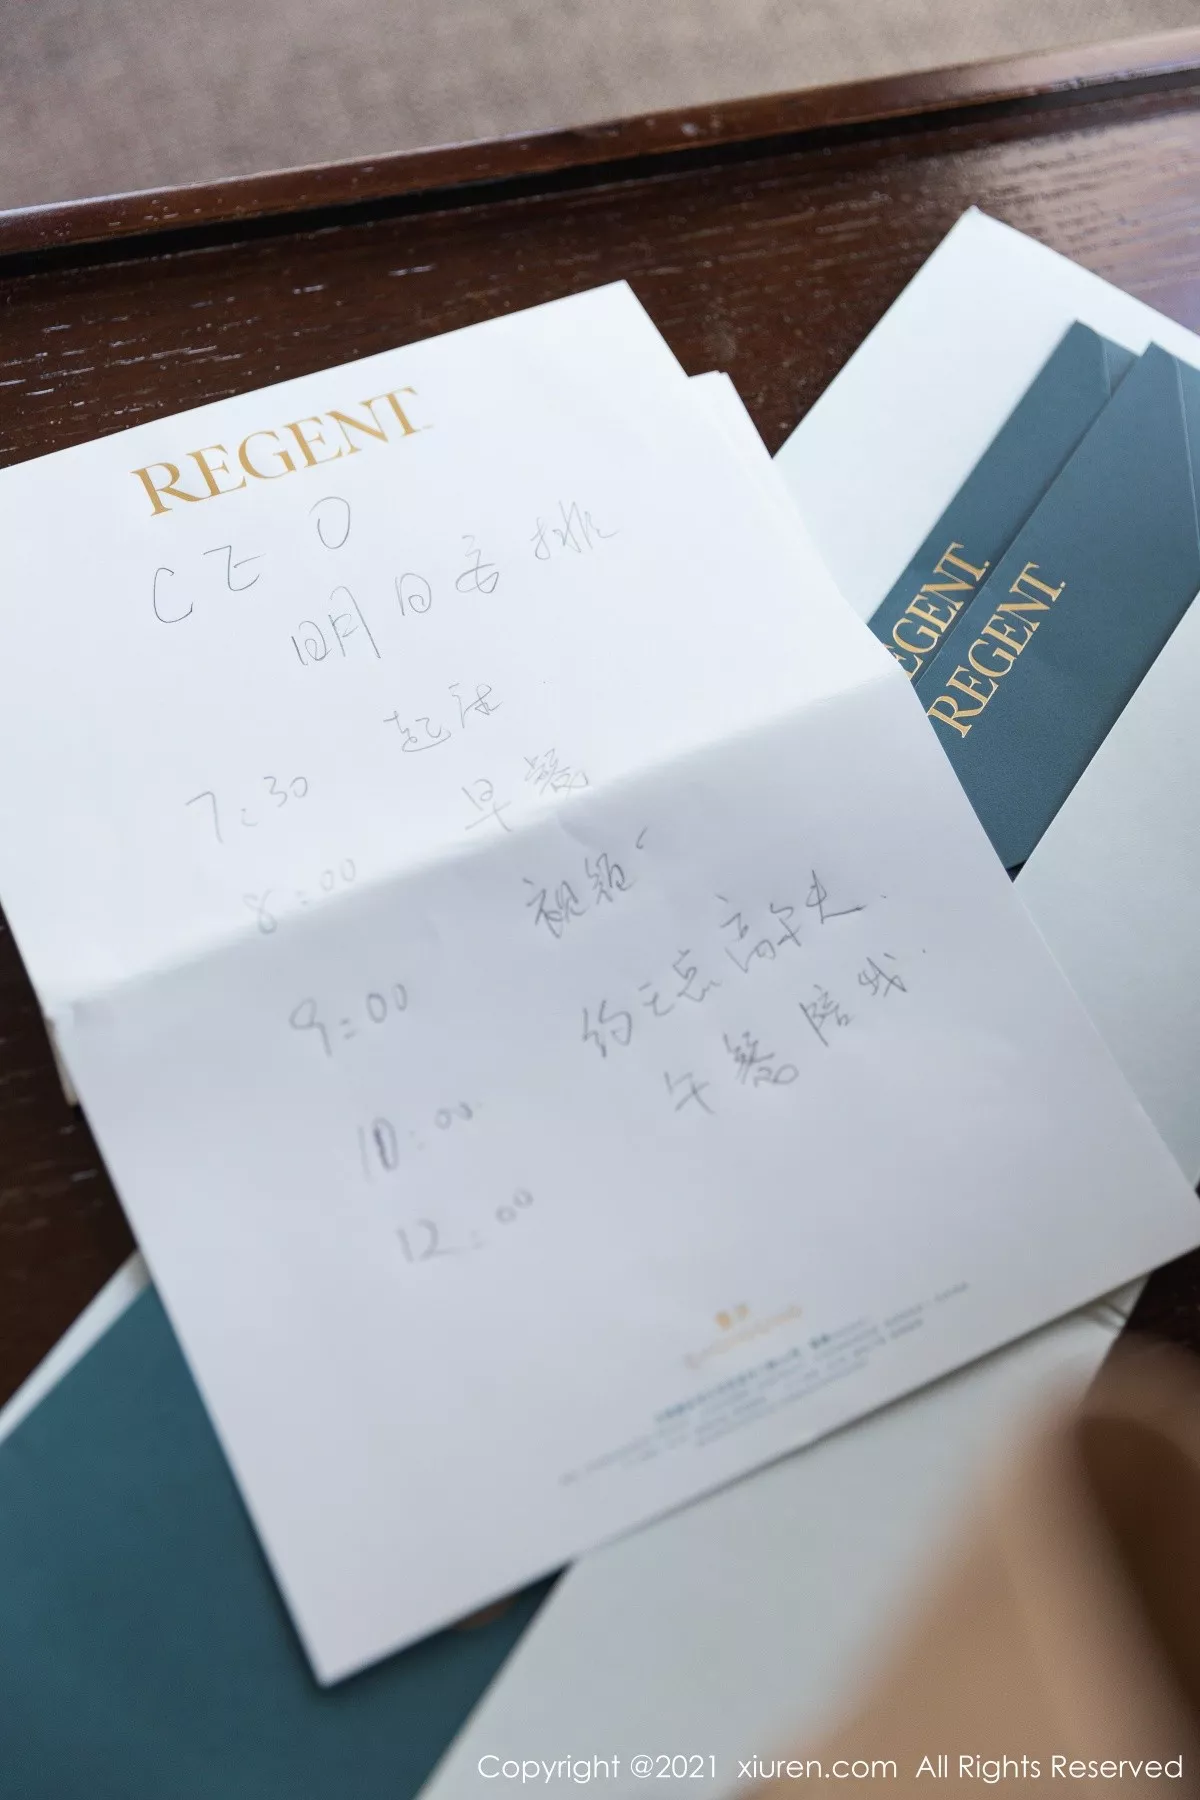 REGENT
CEO
明日安排
7:30 起床
8:00 早餐
9:00 视频
10:00 约王总高尔夫.
12:00 午餐陪我.
EGENT.
REGENT.
Copyright @2021 xiuren.com All Rights Reserved